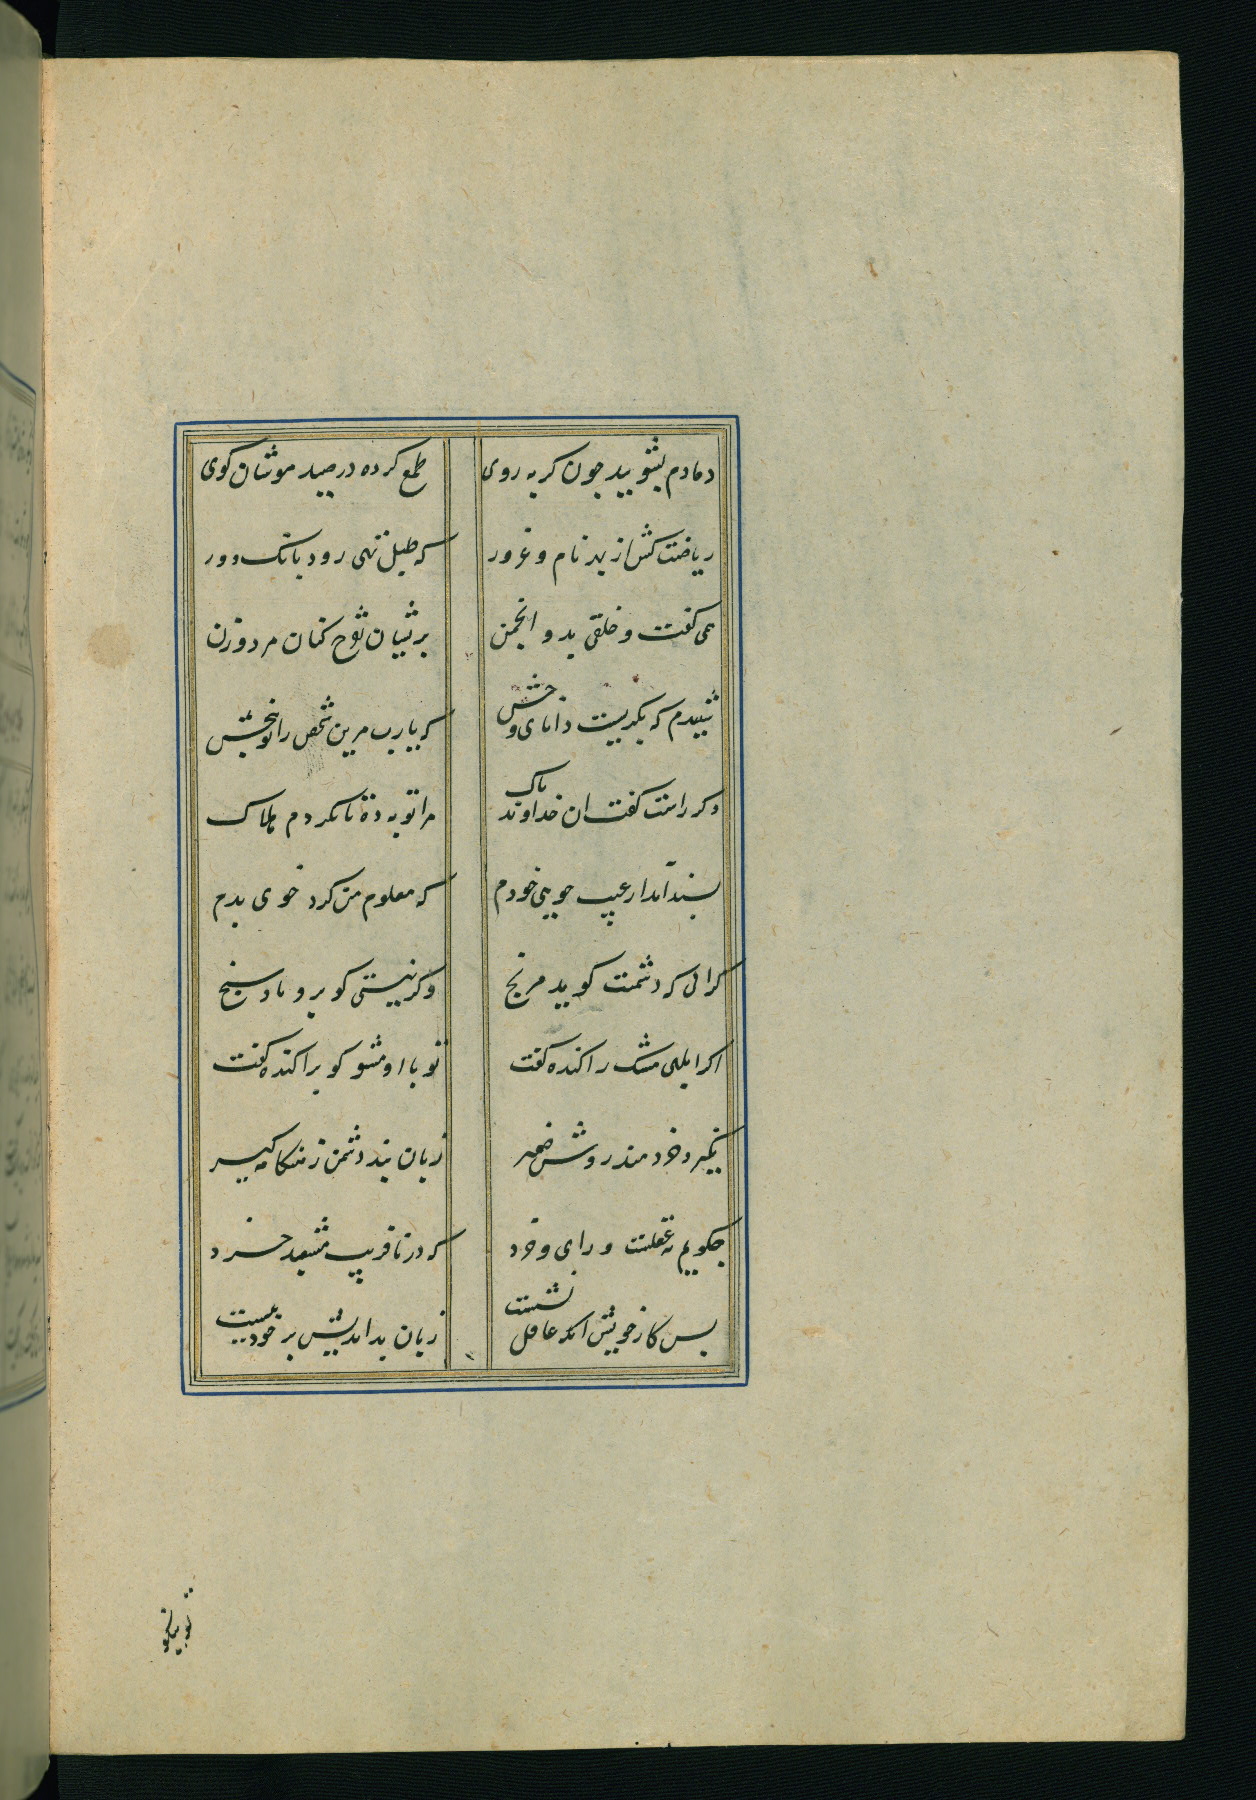 دمادم بشوید چون کربه روی طمع کرده در صید موشان کوی
ریاضت کش از بهر نام و غرور که طبل تهی رود بانک دور
همی کفت و خلقی بدو انجمن بریشان تفرج کنان مرد و زن
شنیدم که بکریست دانای وخش که یارب مرین شخص را توبه بخش
وکر راست کفت ان خداوند پاک مرا توبه ده تا نکردم هلاک
پسند آمد از عیب جویی خودم که معلوم من کرد خوی بدم
کر انی که دشمنت کوید مرنج وکر نیستی کو برو باد سنج
اکر ابلهی مشک را کنده کفت تو باا و مشو کو براکنده کفت
نکیرد خردمند روشن ضمیر زبان بند دشمن ز هنکامه کیر
نه عقلست و رای و خرد که دانا فریب مشعبد خرد
پس کار خویش انکه عاقل نشست زبان بداندیش بر خود ببست
تو نیکو